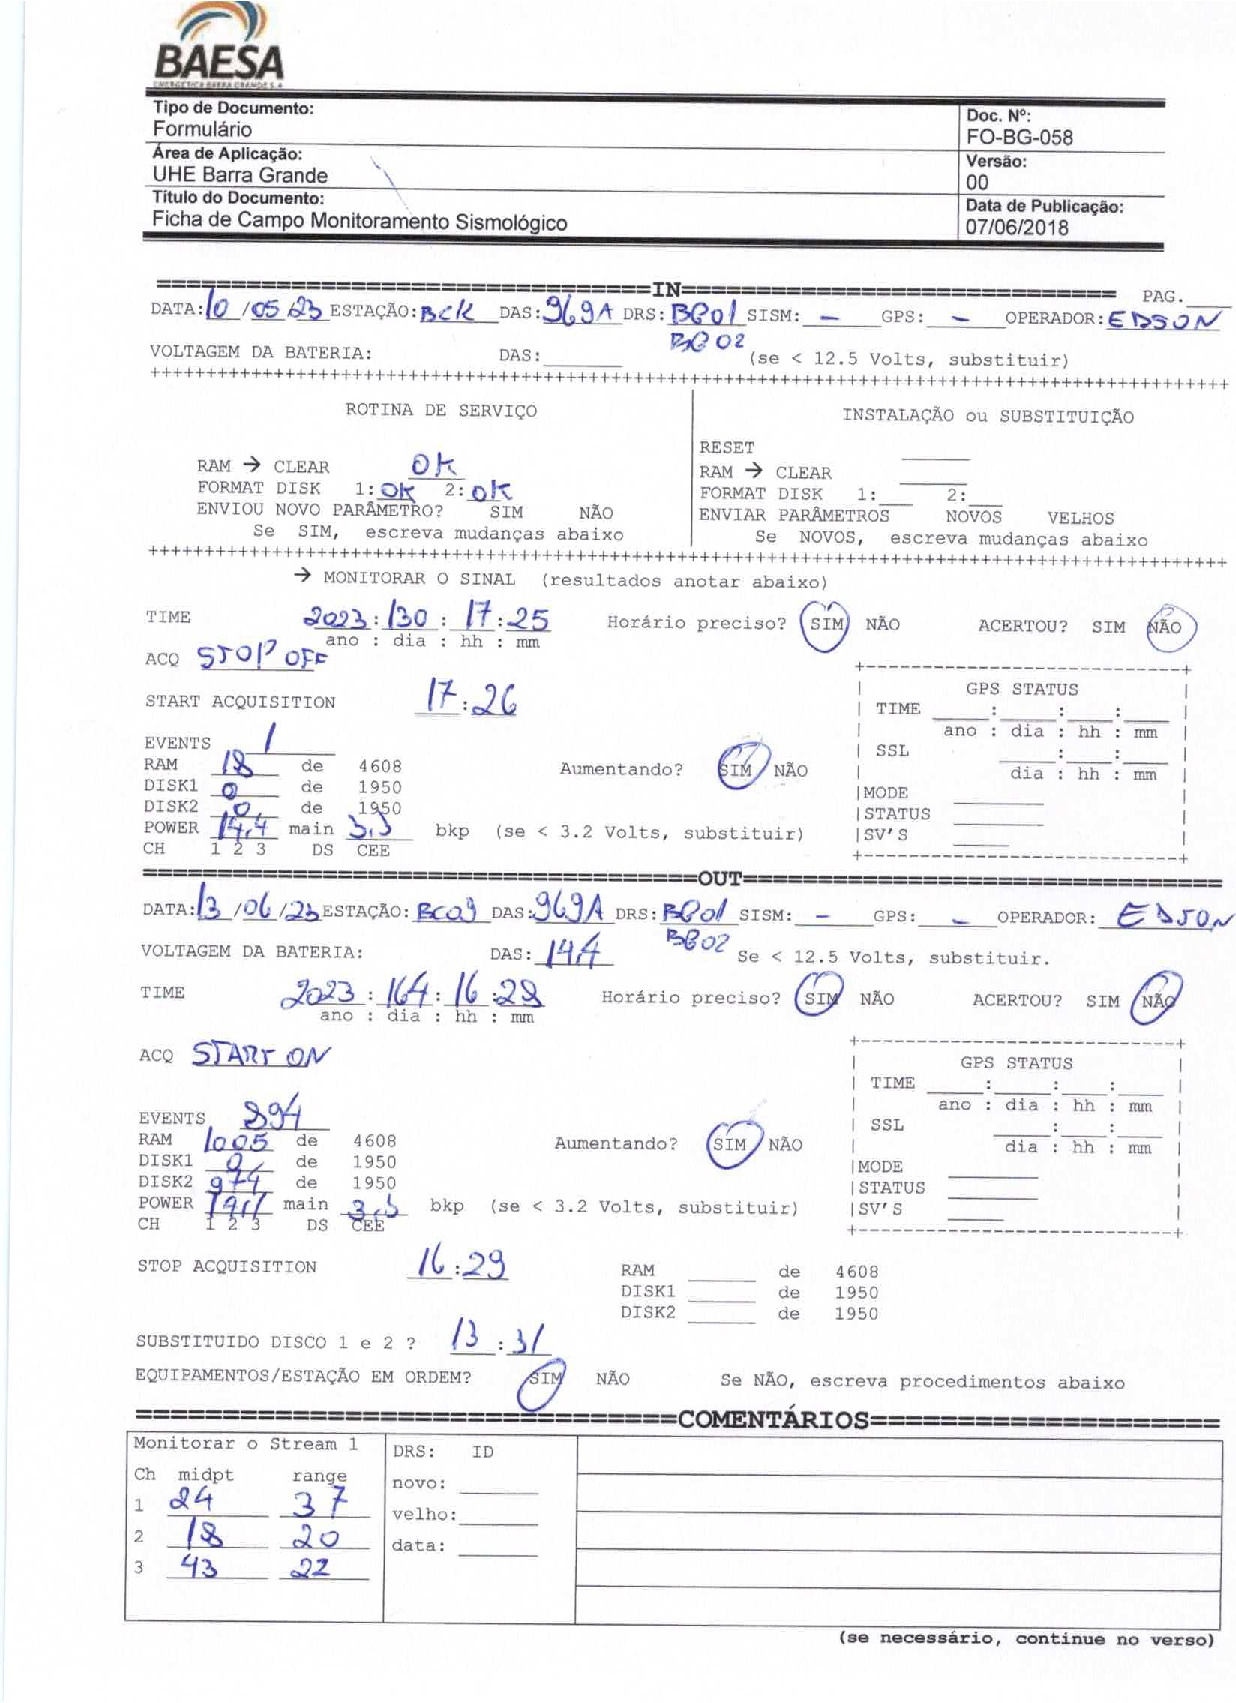 BAESA
ENERGÉTICA BARRA GRANDE S.A
Tipo de Documento:
Formulário
Doc. Nº:
FO-BG-058
Área de Aplicação:
UHE Barra Grande
Versão:
00
Título do Documento:
Ficha de Campo Monitoramento Sismológico
Data de Publicação:
07/06/2018
=================================IN=============================== PAG.____
DATA:10/05/23 ESTAÇÃO: DAS:969A DRS: SISM: - GPS: - OPERADOR:EDSON
VOLTAGEM DA BATERIA: DAS:______ (se < 12.5 Volts, substituir)
++++++++++++++++++++++++++++++++++++++++++++++++++++++++++++++++++++++++++++++++
ROTINA DE SERVIÇO
RAM → CLEAR OK
FORMAT DISK 1:OK 2:OK
ENVIOU NOVO PARÂMETRO? SIM NÃO
Se SIM, escreva mudanças abaixo
INSTALAÇÃO ou SUBSTITUIÇÃO
RESET ______
RAM → CLEAR ______
FORMAT DISK 1:___ 2:___
ENVIAR PARÂMETROS NOVOS VELHOS
Se NOVOS, escreva mudanças abaixo
++++++++++++++++++++++++++++++++++++++++++++++++++++++++++++++++++++++++++++++++
→ MONITORAR O SINAL (resultados anotar abaixo)
TIME 2023:130:17:25 Horário preciso? SIM NÃO ACERTOU? SIM NÃO
ano : dia : hh : mm
ACQ STOP OFF
START ACQUISITION 17:26
EVENTS 1
RAM 18 de 4608 Aumentando? SIM NÃO
DISK1 0 de 1950
DISK2 0 de 1950
POWER 14,4 main 3,3 bkp (se < 3.2 Volts, substituir)
CH 1 2 3 DS CEE
GPS STATUS
TIME _____:____:____:____
ano : dia : hh : mm
SSL ____:____:____
dia : hh : mm
MODE ______
STATUS ______
SV'S ____
=====================================OUT================================
DATA:13/06/23 ESTAÇÃO: DAS:969A DRS: SISM: - GPS: - OPERADOR: EDSON
VOLTAGEM DA BATERIA: DAS:14,4 Se < 12.5 Volts, substituir.
TIME 2023:164:16:28 Horário preciso? SIM NÃO ACERTOU? SIM NÃO
ano : dia : hh : mm
ACQ START ON
EVENTS 894
RAM 1005 de 4608 Aumentando? SIM NÃO
DISK1 0 de 1950
DISK2 974 de 1950
POWER main 3,3 bkp (se < 3.2 Volts, substituir)
CH 1 2 3 DS CEE
GPS STATUS
TIME _____:____:____:____
ano : dia : hh : mm
SSL ____:____:____
dia : hh : mm
MODE ______
STATUS ______
SV'S ____
STOP ACQUISITION 16:29
RAM ______ de 4608
DISK1 ______ de 1950
DISK2 ______ de 1950
SUBSTITUIDO DISCO 1 e 2 ? 13:31
EQUIPAMENTOS/ESTAÇÃO EM ORDEM? SIM NÃO Se NÃO, escreva procedimentos abaixo
=================================COMENTÁRIOS=====================
Monitorar o Stream 1
Ch midpt range
1 24 37
2 18 20
3 43 22
DRS: ID
novo: ______
velho:______
data: ______
(se necessário, continue no verso)